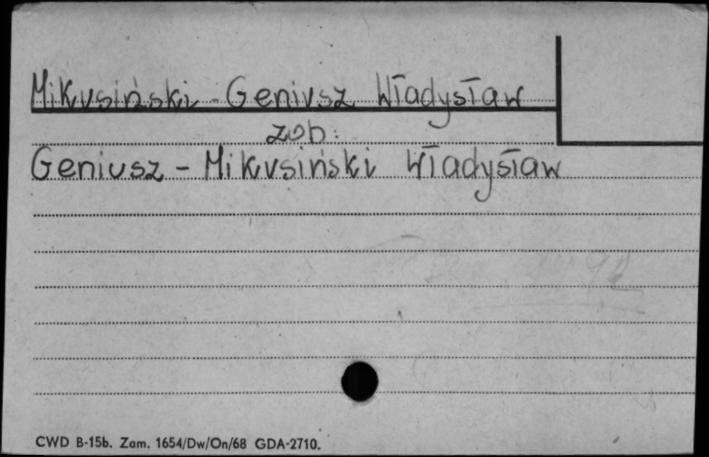 Mikusiński - Geniusz Władysław
zob:
Geniusz - Mikusiński Władysław
CWD B-15b. Zam. 1654/Dw/On/68 GDA-2710.